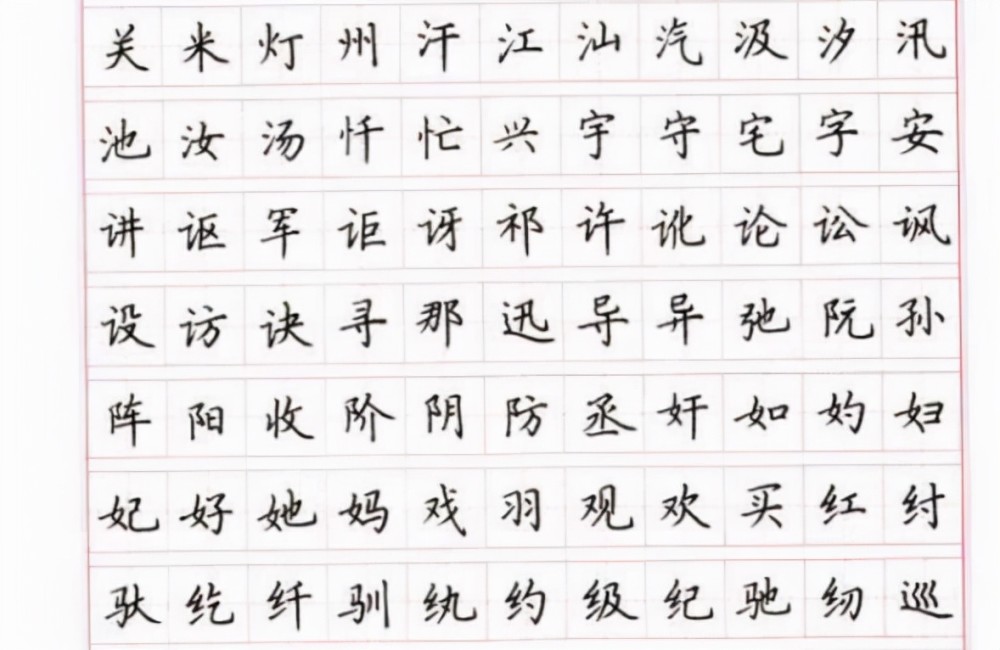 关米灯州汗江汕汽汲汐汛
池汝汤忏忙兴宇守宅字安
讲讴军讵讶祁许讹论讼讽
设访诀寻那迅导异弛阮孙
阵阳收阶阴防丞奸如妁妇
妃好她妈戏羽观欢买红纣
驮纥纤驯纨约级纪驰纫巡